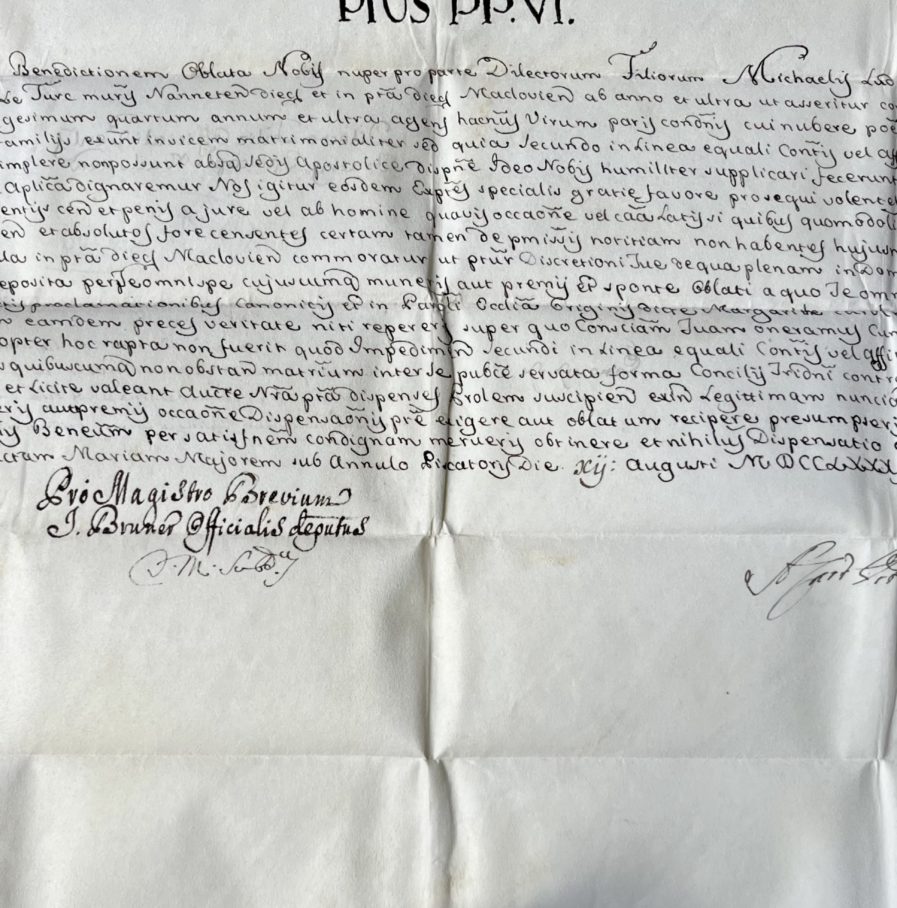 PIUS PP. VI.
Benedictionem Oblata Nobis nuper pro parte Dilectorum Filiorum Michaelis
Le Turc murij Nanneteñ diecẽ et in p̃rã diecẽ Maclovieñ ab anno et ultra ut asseritur co
gesimum quartum annum et ultra agens hac̃nus Virum paris condñis cui nubere
amilijs exũnt invicem matrimonialiter sed quia secundo in Linea equali Cont̃is vel aff
implere non possunt absq̃ sedis Apostolice dispñe Ideo Nobis humiliter supplicari fecerunt
Aplicã dignaremur Nos igitur eosdem specialis gratie favore prosequi volentes
entijs ceñ et penis a jure vel ab homine quavis occaõne vel caã Latis si quibus quomodol
eñ et absolutos fore censentes certam tamen de p̃missis noritiam non habentes hujusm
ua in p̃rã diecẽ Maclovieñ commoratur ut p̃tur Discretioni Tue de qua plenam in Dom
eposita per Te omni spe cujuscumq̃ muneris aut premij Et sponte Oblati a quo Te omn
proclamationibus Canonicis Et in Ecclia Originis dicte Margarite
eamdem preces veritate niti repereris super quo Consciam Tuam oneramus Cum
opter hoc rapta non fuerit quod Impedimeñ secundi in Linea equali Cont̃is vel affin
quibuscumq̃ non obstañ matrium inter se pub̃ce servata forma Concilij Tridñi contra
et Licite valeant Auctẽ Nrã p̃rã dispenses Prolem suscipieñ exiñ Legittimam nuncia
eris aut premij occaõne Dispensaõnis p̃rẽ exigere aut oblatum recipere presumpseris
is Beneũm per satisfñem condignam merueris obtinere et nihilus Dispensatio
ctam Mariam Majorem sub Annulo Piscatoris Die xij: Augusti MDCCLXXX
Pro Magistro Brevium
J. Bruner Officialis Deputus